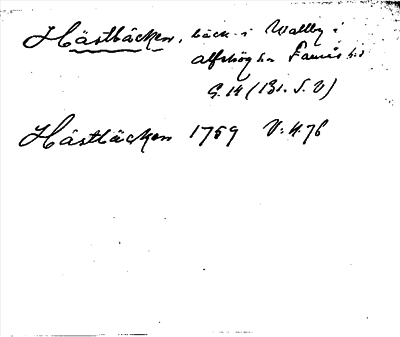 Hästbäcken, bäck i Wallby i
Alfshög sn Faurås hd
G.14 (Bl. S.V)
Hästbäcken 1759 V:4.76